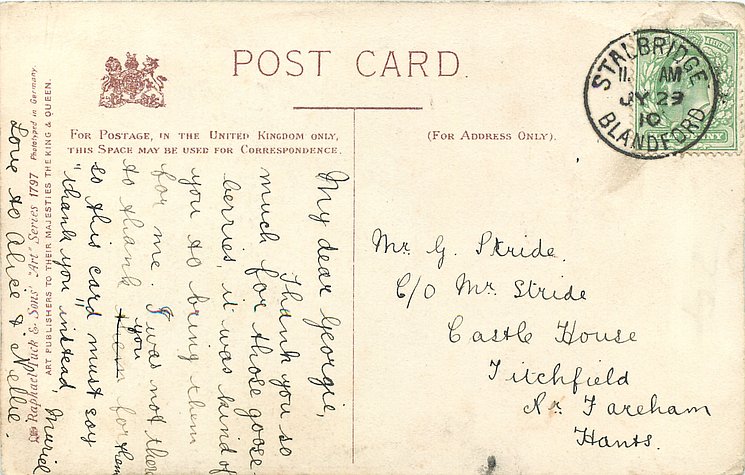 POST CARD.
FOR POSTAGE, IN THE UNITED KINGDOM ONLY,
THIS SPACE MAY BE USED FOR CORRESPONDENCE.
(FOR ADDRESS ONLY).
STALBRIDGE
11. AM
JY 29
10
BLANDFORD
My dear Georgie,
Thank you so
much for those goose
berries, it was kind of
you to bring them
for me. I was not there
to thank you them for them
so this card must say
"thank you" instead
Muriel
Love to Alice & Nellie.
Raphael Tuck & Sons' "Art" Series 1797 Phototyped in Germany.
ART PUBLISHERS TO THEIR MAJESTIES THE KING & QUEEN.
Mr. G. Stride.
C/O Mr. Stride
Castle House
Titchfield
Nr. Fareham
Hants.